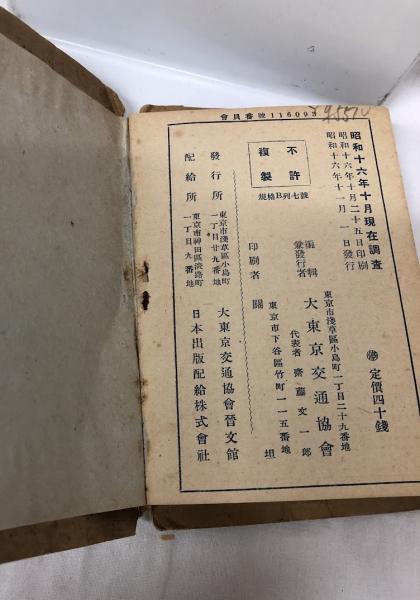 會員番號116093
昭和十六年十月現在調査
昭和十六年十月二十五日印刷
昭和十六年十一月一日發行
停 定價四十錢
不許
複製
規格B列七號
東京市淺草區小島町一丁目二十九番地
編輯
兼發行者
大東京交通協會
代表者 齋藤文一郎
東京市下谷區竹町一一五番地
印刷者 關 坦
東京市淺草區小島町
一丁目廿九番地
發行所 大東京交通協會晉文館
東京市神田區淡路町
一丁目九番地
配給所 日本出版配給株式會社